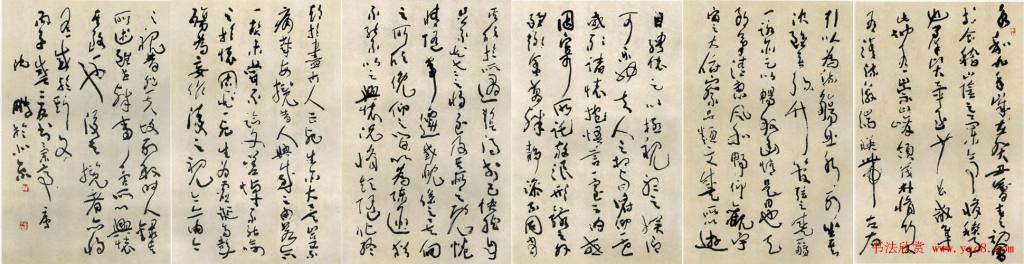 永和九年歲在癸丑暮春之初會
於會稽山陰之蘭亭脩禊事
也羣賢畢至少長咸集
此地有崇山峻領茂林脩竹
又有清流激湍映帶左右
引以為流觴曲水列坐其
次雖無絲竹管弦之盛一觴
一詠亦足以暢叙幽情是日也天
朗氣清惠風和暢仰觀宇
宙之大俯察品類之盛所以遊
目騁懷足以極視聽之娛信
可樂也夫人之相與俯仰一世
或取諸懷抱悟言一室之內或
因寄所託放浪形骸之外
雖趣舍萬殊靜躁不同當
其欣於所遇暫得於己快然自
足不知老之將至及其所之既惓
情隨事遷感慨係之矣向
之所欣俯仰之間以為陳迹猶
不能不以之興懷況脩短隨化終
期於盡古人云死生亦大矣豈不
痛哉每攬昔人興感之由若合
一契未嘗不臨文嗟悼不能喻
之於懷固知一死生為虛誕齊彭
殤為妄作後之視今亦由今
之視昔悲夫故列叙時人錄其
所述雖世殊事異所以興懷
其致一也後之攬者亦將
有感於斯文
丙子盛夏書蘭亭序
沈鵬於北京
书法欣赏 www.yac8.com